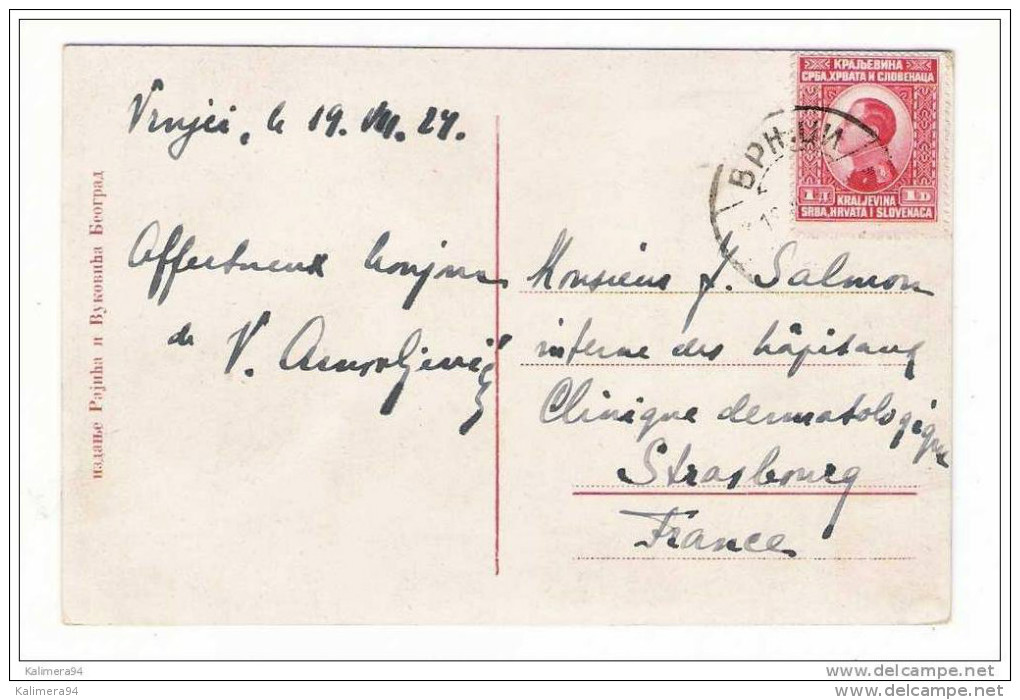 Vrnjci, le 19. VIII. 24.
Affectueux bonjour
de V.
издање Рајића и Вуковића Београд
КРАЉЕВИНА
СРБА, ХРВАТА И СЛОВЕНАЦА
1 Д 1 D
KRALJEVINA
SRBA, HRVATA I SLOVENACA
ВРЊЦИ
Monsieur J. Salmon
interne des hôpitaux
Clinique dermatologique
Strasbourg
France
Kalimera94
www.delcampe.net
Kalimera94
www.delcampe.net